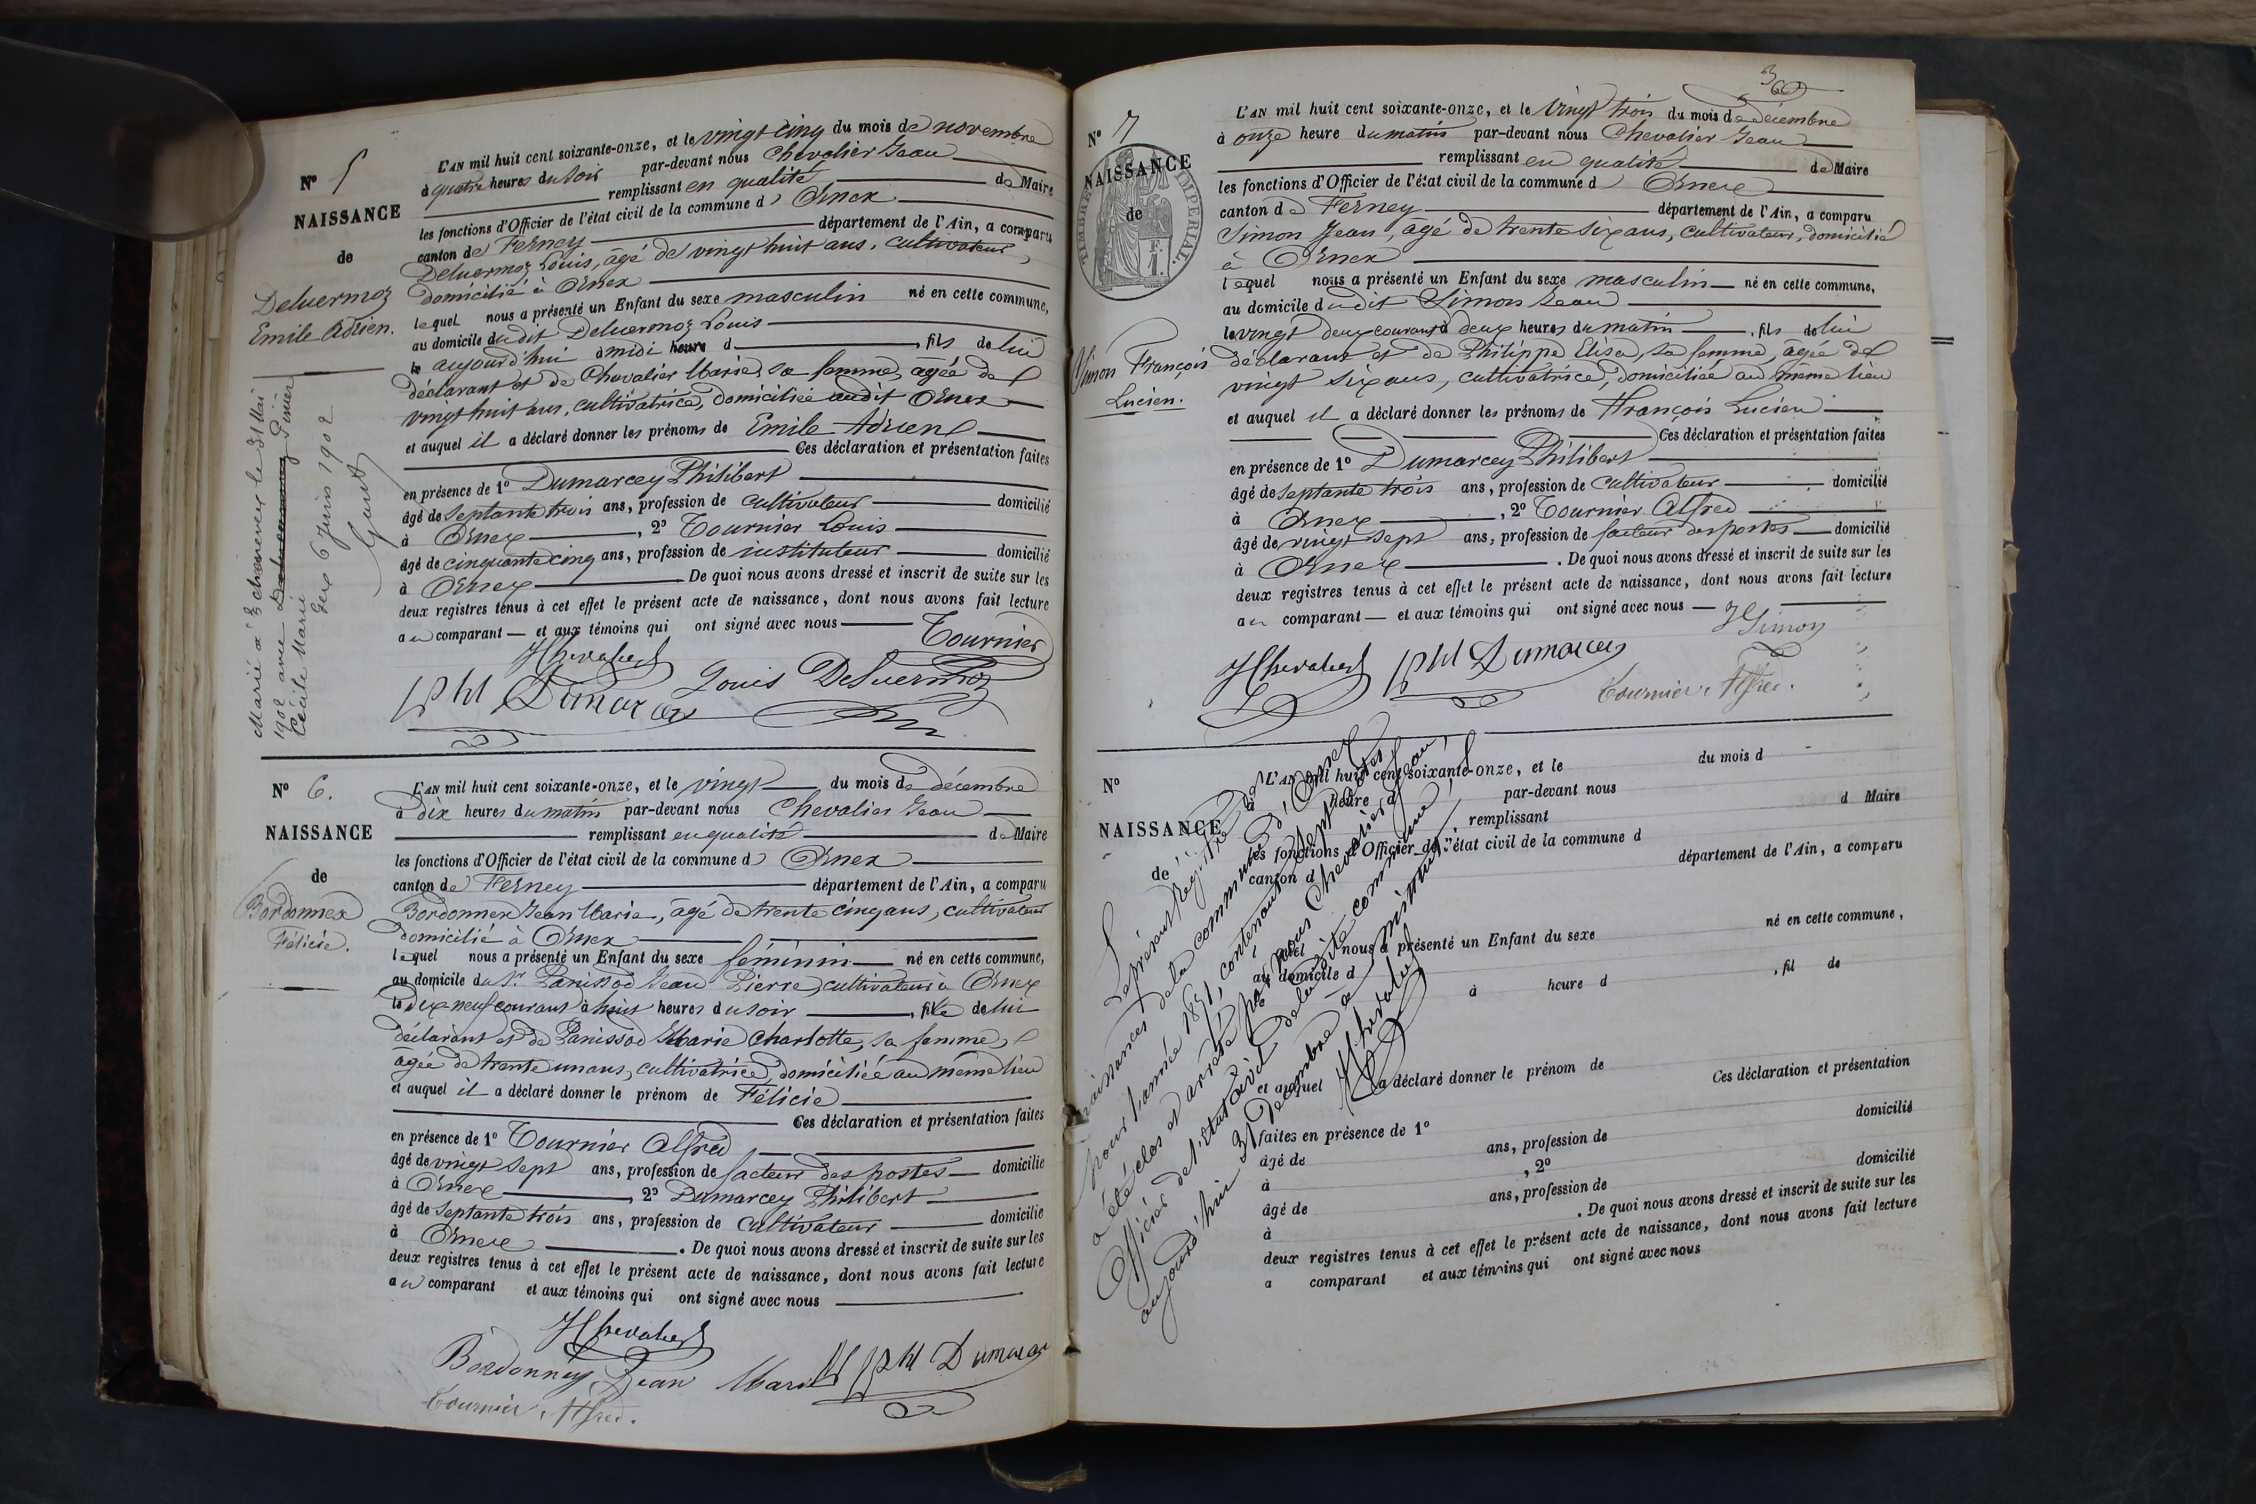 Nº 5
NAISSANCE
de
Deluermoz
Emile Adrien.
L'AN mil huit cent soixante-onze, et le vingt cinq du mois de novembre
à quatre heures du soir par-devant nous Chevalier Jean
remplissant en qualité de Maire
les fonctions d'Officier de l'état civil de la commune d' Ornex
canton de Ferney département de l'Ain, a comparu
Deluermoz Louis, âgé de vingt huit ans, cultivateur,
domicilié à Ornex
lequel nous a présenté un Enfant du sexe masculin né en cette commune,
au domicile dudit Deluermoz Louis
le aujourd'hui à midi heure d , fils de lui
déclarant et de Chevalier Marie, sa femme, âgée de
vingt huit ans, cultivatrice, domiciliée audit Ornex
et auquel il a déclaré donner les prénoms de Emile Adrien
Ces déclaration et présentation faites
en présence de 1º Dumarcey Philibert
âgé de septante trois ans, profession de cultivateur domicilié
à Ornex , 2º Tournier Louis
âgé de cinquante cinq ans, profession de instituteur domicilié
à Ornex De quoi nous avons dressé et inscrit de suite sur les
deux registres tenus à cet effet le présent acte de naissance, dont nous avons fait lecture
au comparant et aux témoins qui ont signé avec nous
Tournier
JChevalier
Phl Dumarcey Louis Deluermoz
Marié à Echenevex le 31 Mai
1902 avec Deluermoz
Cécile Marie
Gex 6 Juin 1902
Nº 6.
NAISSANCE
de
Bordonnex
Félicie.
L'AN mil huit cent soixante-onze, et le vingt du mois de décembre
à dix heures du matin par-devant nous Chevalier Jean
remplissant en qualité de Maire
les fonctions d'Officier de l'état civil de la commune d' Ornex
canton de Ferney département de l'Ain, a comparu
Bordonnex Jean Marie, âgé de trente cinq ans, cultivateur
domicilié à Ornex
lequel nous a présenté un Enfant du sexe féminin né en cette commune,
au domicile du Sr. Panissod Jean Pierre, cultivateur à Ornex
le dix neuf courant à huit heures du soir , fille de lui
déclarant et de Panissod Marie Charlotte, sa femme,
âgée de trente un ans, cultivatrice, domiciliée au même lieu
et auquel il a déclaré donner le prénom de Félicie
Ces déclaration et présentation faites
en présence de 1º Tournier Alfred
âgé de vingt sept ans, profession de facteur des postes domicilié
à Ornex , 2º Dumarcey Philibert
âgé de septante trois ans, profession de cultivateur domicilié
à Ornex . De quoi nous avons dressé et inscrit de suite sur les
deux registres tenus à cet effet le présent acte de naissance, dont nous avons fait lecture
au comparant et aux témoins qui ont signé avec nous
JChevalier
Bordonnex Jean Marie Phl Dumarcey
Tournier Alfred.
36
Nº 7
NAISSANCE
de
TIMBRE IMPERIAL.
1 F.
Simon François
Lucien.
L'AN mil huit cent soixante-onze, et le vingt trois du mois de décembre
à onze heure du matin par-devant nous Chevalier Jean
remplissant en qualité de Maire
les fonctions d'Officier de l'état civil de la commune d' Ornex
canton de Ferney département de l'Ain, a comparu
Simon Jean, âgé de trente six ans, cultivateur, domicilié
à Ornex
lequel nous a présenté un Enfant du sexe masculin né en cette commune,
au domicile dudit Simon Jean
le vingt deux courant à deux heures du matin , fils de lui
déclarant et de Philippe Elisa, sa femme, âgée de
vingt six ans, cultivatrice, domiciliée au même lieu
et auquel il a déclaré donner les prénoms de François Lucien
Ces déclaration et présentation faites
en présence de 1º Dumarcey Philibert
âgé de septante trois ans, profession de cultivateur domicilié
à Ornex , 2º Tournier Alfred
âgé de vingt sept ans, profession de facteur des postes domicilié
à Ornex . De quoi nous avons dressé et inscrit de suite sur les
deux registres tenus à cet effet le présent acte de naissance, dont nous avons fait lecture
au comparant et aux témoins qui ont signé avec nous
JSimon
JChevalier Phl Dumarcey
Tournier Alfred.
Nº
NAISSANCE
de
L'AN mil huit cent soixante-onze, et le du mois d
à heure d par-devant nous
remplissant d Maire
les fonctions d'Officier de l'état civil de la commune d
canton d département de l'Ain, a comparu
lequel nous a présenté un Enfant du sexe né en cette commune,
au domicile d
le à heure d , fil de
et auquel a déclaré donner le prénom de
Ces déclaration et présentation
faites en présence de 1º
âgé de ans, profession de domicilié
à , 2º
âgé de ans, profession de domicilié
à . De quoi nous avons dressé et inscrit de suite sur les
deux registres tenus à cet effet le présent acte de naissance, dont nous avons fait lecture
a comparant et aux témoins qui ont signé avec nous
Le présent Registre de
naissances de la commune d'Ornex
pour l'année 1871, contenant sept actes
a été clos et arrêté par nous Chevalier Jean,
Officier de l'état civil de la dite commune,
aujourd'hui 31 Décembre à minuit.
JChevalier